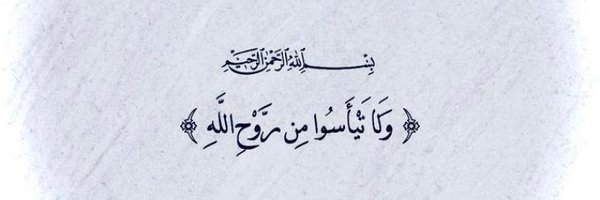 بِسْمِ اللَّهِ الرَّحْمَٰنِ الرَّحِيمِ
﴿ وَلَا تَيْأَسُوا مِن رَّوْحِ اللَّهِ ﴾